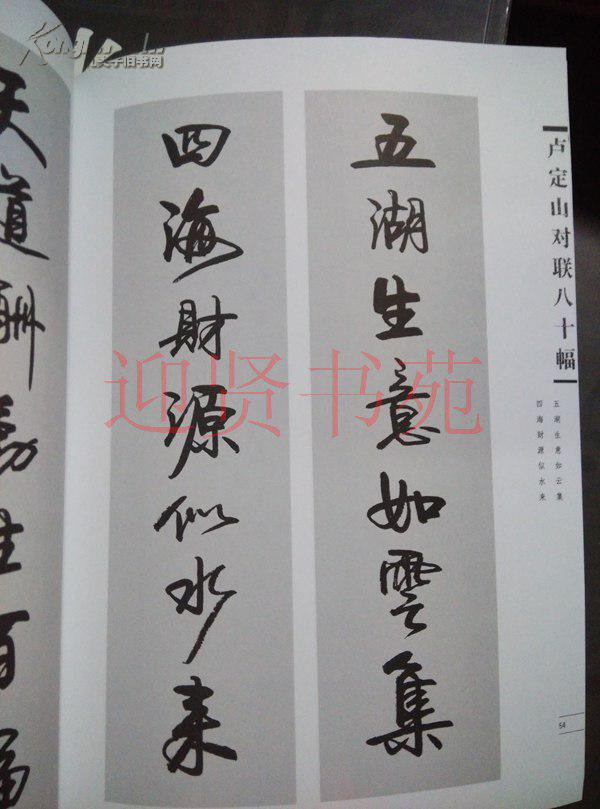 卢定山对联八十幅
五湖生意如云集
四海财源似水来
五湖生意如雲集
四海財源似水来
天道酬勤生百福
54
迎贤书苑
孔夫子旧书网